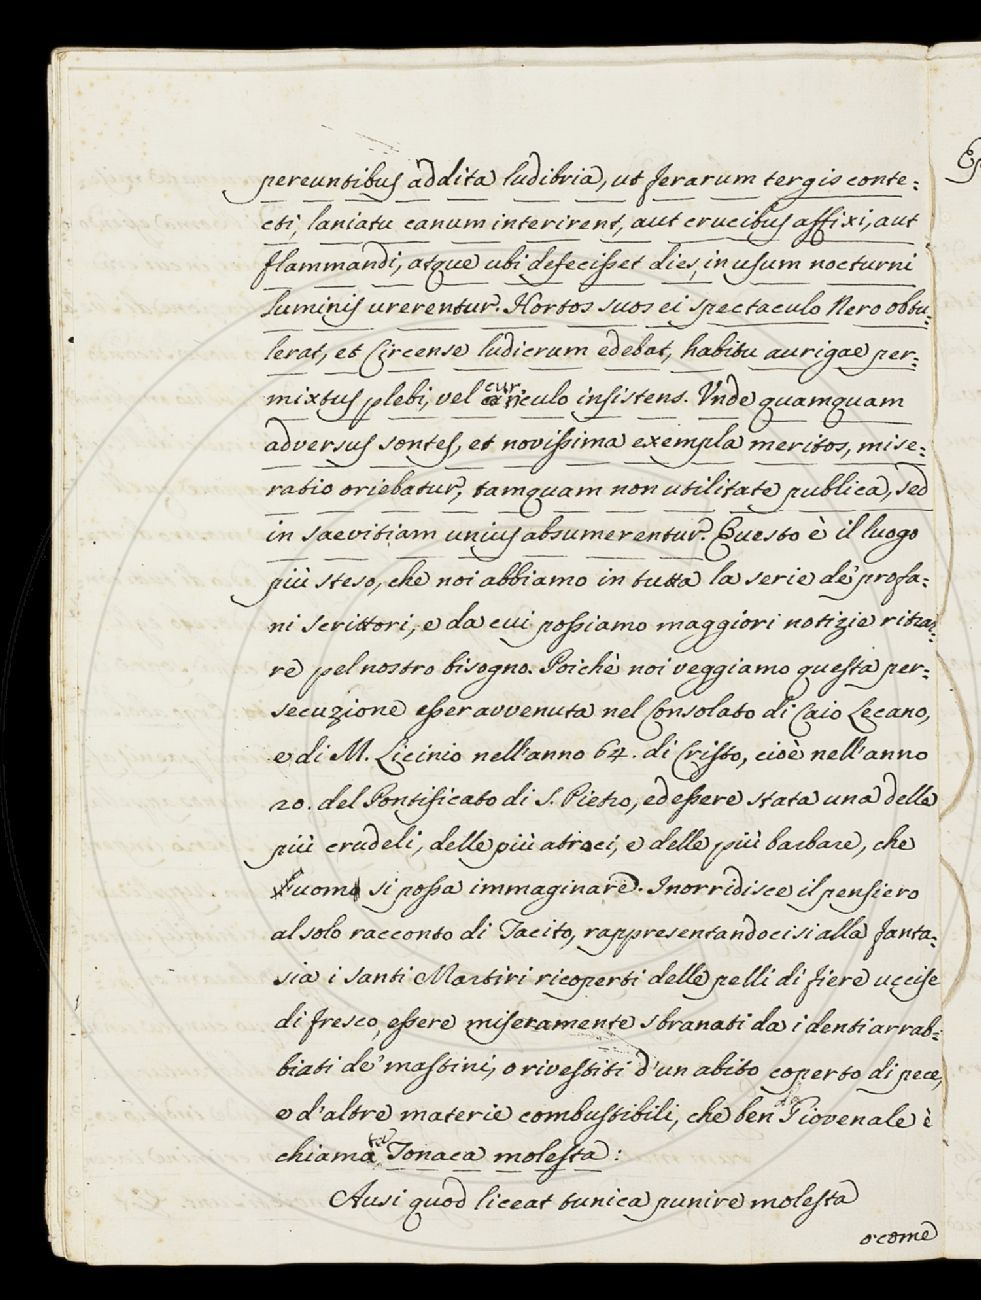 pereuntibus addita ludibria, ut ferarum tergis conte=
cti, laniatu canum interirent, aut crucibus affixi, aut
flammandi, atque ubi defecisset dies, in usum nocturni
luminis urerentur. Hortos suos ei spectaculo Nero obtu=
lerat, et Circense ludicrum edebat, habitu aurigae per=
mixtus plebi, vel curriculo insistens. Unde quamquam
adversus sontes, et novissima exempla meritos, mise=
ratio oriebatur, tamquam non utilitate publica, sed
in saevitiam unius absumerentur. Questo è il luogo
più steso, che noi abbiamo in tutta la serie de' profa=
ni scrittori, e da cui possiamo maggiori notizie ritrar=
re pel nostro bisogno. Poichè noi veggiamo questa per=
secuzione esser avvenuta nel Consolato di Caio Lecano,
e di M. Licinio nell'anno 64. di Cristo, cioè nell'anno
20. del Pontificato di S. Pietro, ed essere stata una delle
più crudeli, delle più atroci, e delle più barbare, che
uomo si possa immaginare. Inorridisce il pensiero
al solo racconto di Tacito, rappresentandocisi alla fanta=
sia i Santi Martiri ricoperti delle pelli di fiere uccise
di fresco, essere miseramente sbranati da i denti arrab=
biati de' mastini, o rivestiti d'un abito coperto di pece,
e d'altre materie combustibili, che ben da Giovenale è
chiamata Tonaca molesta:
Ausi quod liceat tunica punire molesta
o come